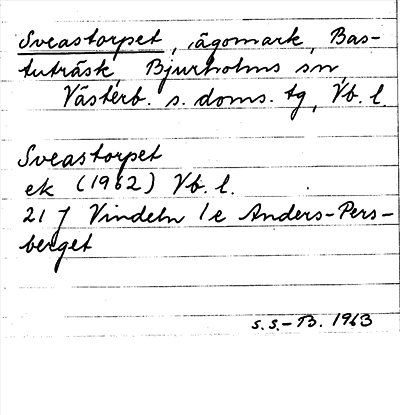 Sveastorpet, ägomark, Bas-
tuträsk, Bjurholms sn,
Västerb. s. doms. tg, Vb. l.
Sveastorpet
ek (1962) Vb. l.
21 7 Vindeln 1e Anders-Pers-
berget
S.S.-B. 1963